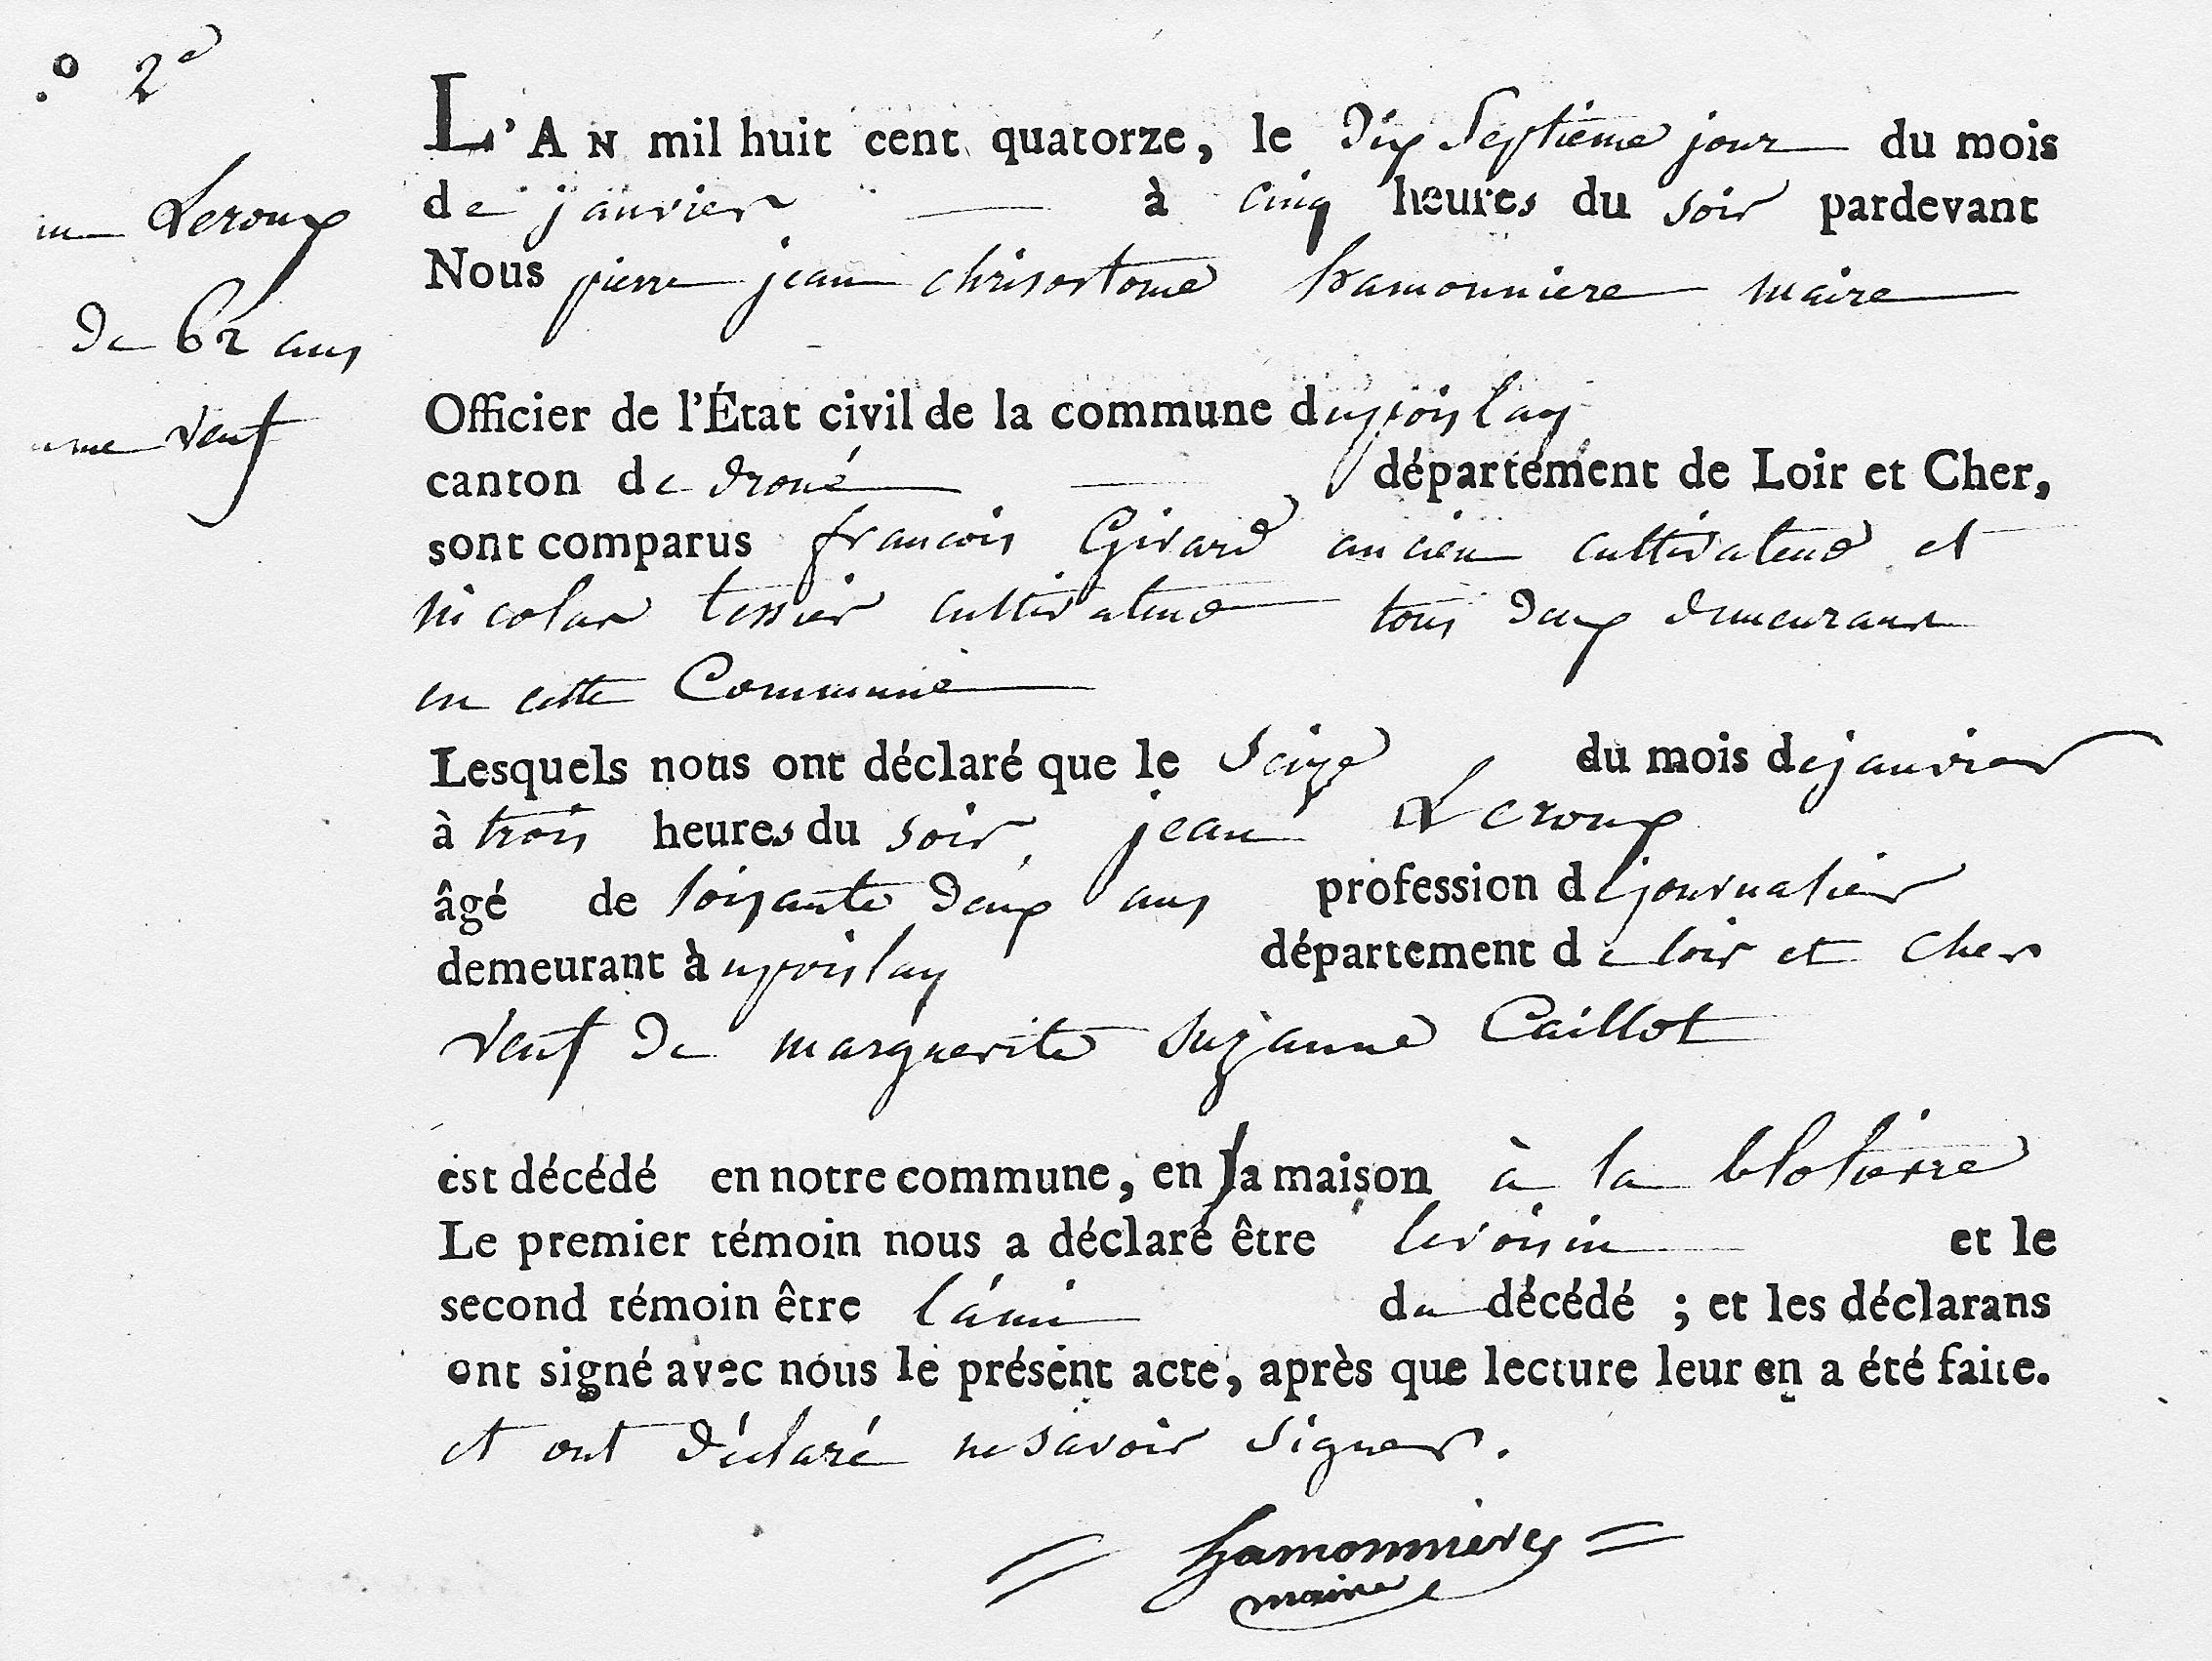 .º 2e
Leroux
de 62 ans
veuf
L'AN mil huit cent quatorze, le dix septieme jour du mois
de janvier à cinq heures du soir pardevant
Nous pierre jean chrisostome hamonniere maire
Officier de l'État civil de la commune du poislay
canton de droué département de Loir et Cher,
sont comparus francois Girard ancien cultivateur et
nicolas tessier cultivateur tous deux demeurant
en cette Commune
Lesquels nous ont déclaré que le seize du mois de janvier
à trois heures du soir, jean Leroux
âgé de soixante deux ans profession de journalier
demeurant au poislay département de loir et Cher
veuf de marguerite suzanne Caillot
est décédé en notre commune, en sa maison à la blotierre
Le premier témoin nous a déclaré être le voisin et le
second témoin être l'ami du décédé ; et les déclarans
ont signé avec nous le présent acte, après que lecture leur en a été faite.
et ont déclaré ne savoir signer.
hamonnière
maire